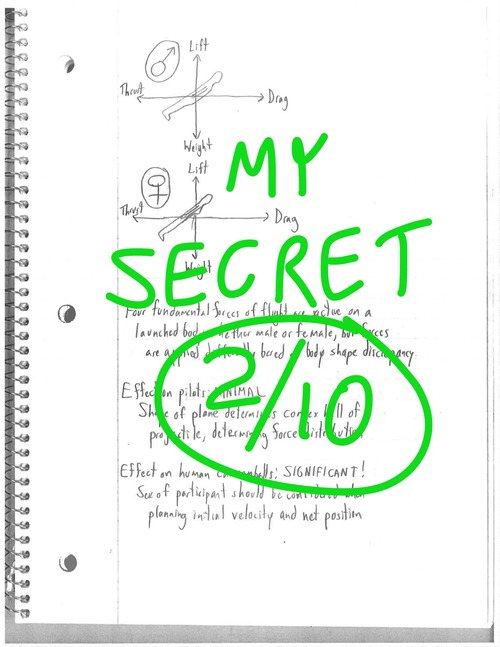 Lift
Thrust Drag
Weight
Lift
Thrust Drag
Weight
MY
SECRET
2/10
Four fundamental forces of flight are active on a
launched body whether male or female, but forces
are applied differently based on body shape discrepancy
Effect on pilots: MINIMAL
Shape of plane determines convex hull of
projectile, determining force distribution
Effect on human cannonballs: SIGNIFICANT!
Sex of participant should be considered when
planning initial velocity and net position